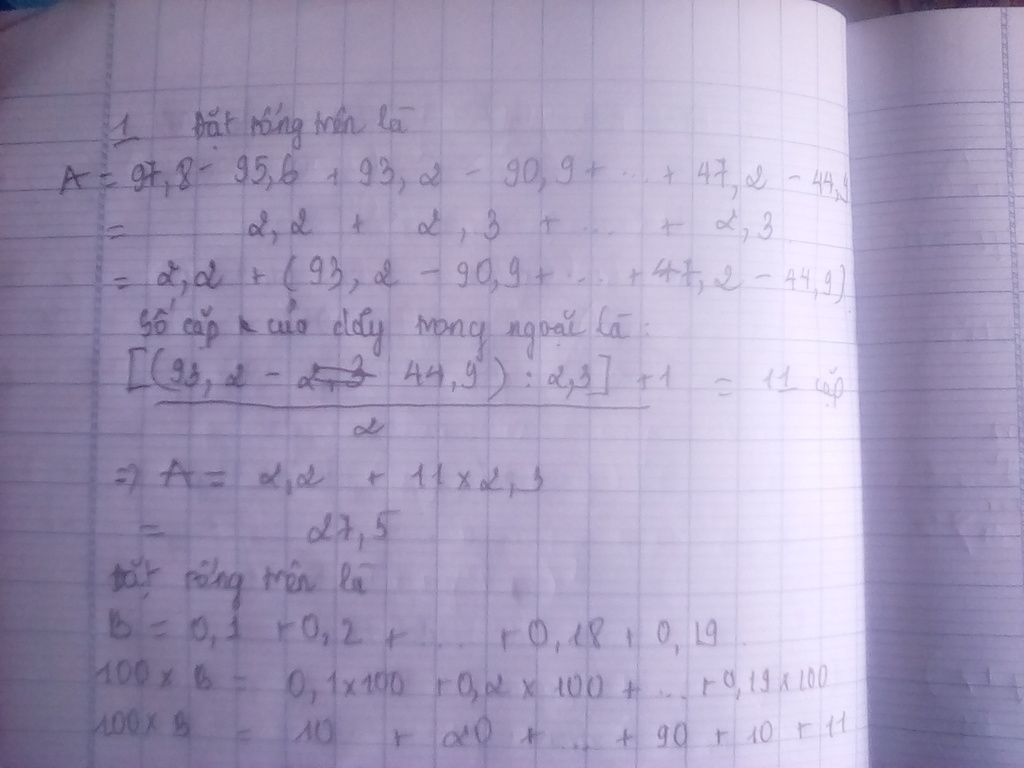 1 Đặt tổng trên là
A = 97,8 - 95,6 + 93,2 - 90,9 + ... + 47,2 - 44,9
= 2,2 + 2,3 + ... + 2,3
= 2,2 + (93,2 - 90,9 + ... + 47,2 - 44,9)
Số cặp của dãy trong ngoặc là:
[(93,2 - 44,9) : 2,3] + 1 = 11 cặp
2
=> A = 2,2 + 11 x 2,3
= 27,5
Đặt tổng trên là
B = 0,1 + 0,2 + ... + 0,18 + 0,19
100 x B = 0,1 x 100 + 0,2 x 100 + ... + 0,19 x 100
100 x B = 10 + 20 + ... + 90 + 10 + 11